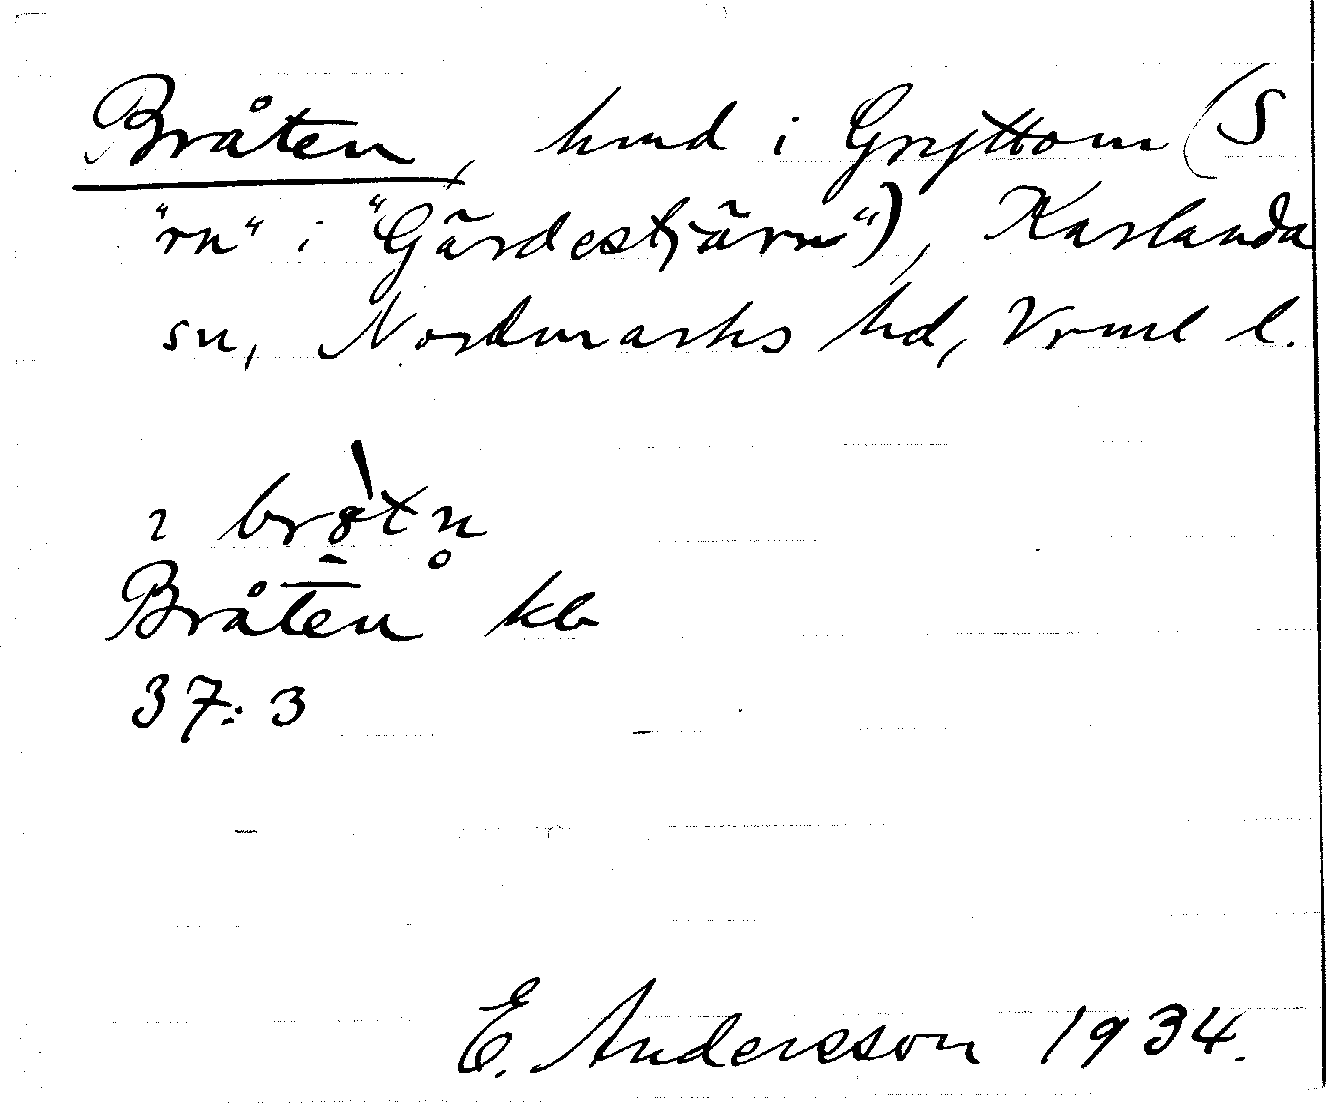 Bråten, hmd i Gryttom (S
"rn" i "Gärdestjärn"), Karlanda
sn, Nordmarks hd, Vrml l.
ı brotn̥
Bråten kb
37:3
E. Andersson 1934.